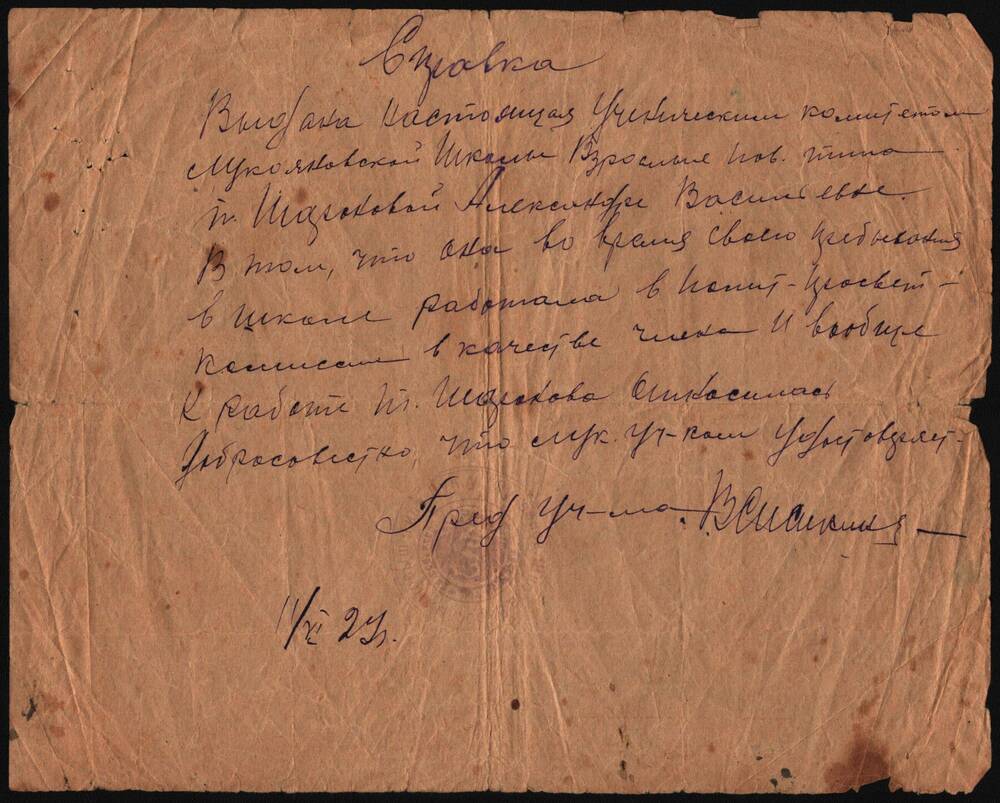 Справка
Выдана настоящая Ученическим комитетом
Мукояновской Школы Взрослые пов. типа
т. Шароновой Александре Васильевне.
В том, что она во время своего пребывания
в школе работала в Полит-просвет-
комиссии в качестве члена и вообще
к работе т. Шаронова относилась
добросовестно, что мук. уч-ком удостоверяет.
Пред уч-ма
11/XI 27г.